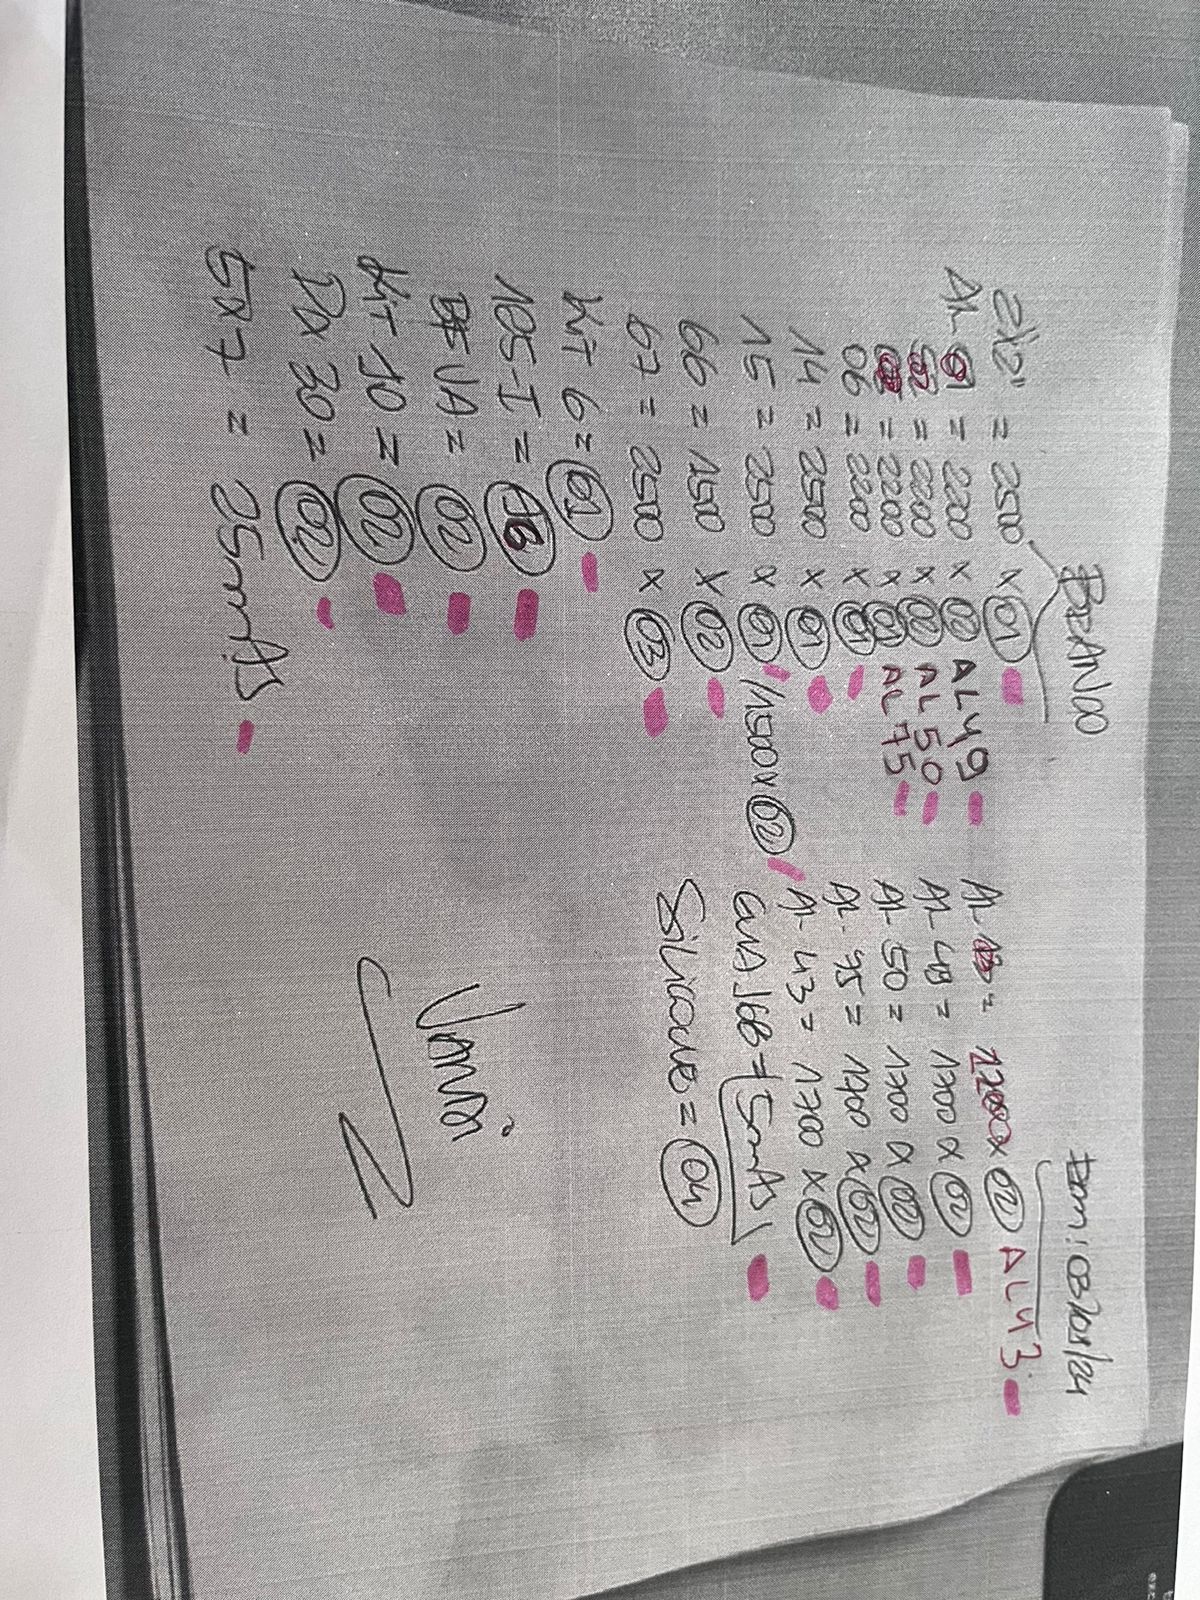 BRANCO
03/01/24
2x2" = 2500 x 01
AL = 2200 x 02 AL49
= 2200 x 02 AL50
= 2200 x 01 AL75
06 = 2200 x 01
14 = 2500 x 01
15 = 2500 x 01 / 1500 x 02
66 = 1500 x 02
67 = 2500 x 03
KIT 6 = 01
105-I = 16
02
KIT 10 = 02
30 = 02
5x7 = 25mts
AL = x 02 AL43
AL 49 = 1700 x 02
AL 50 = 1700 x 02
AL 75 = 1700 x 02
AL 43 = 1700 x 02
5mts
Silicone = 04
Vanni